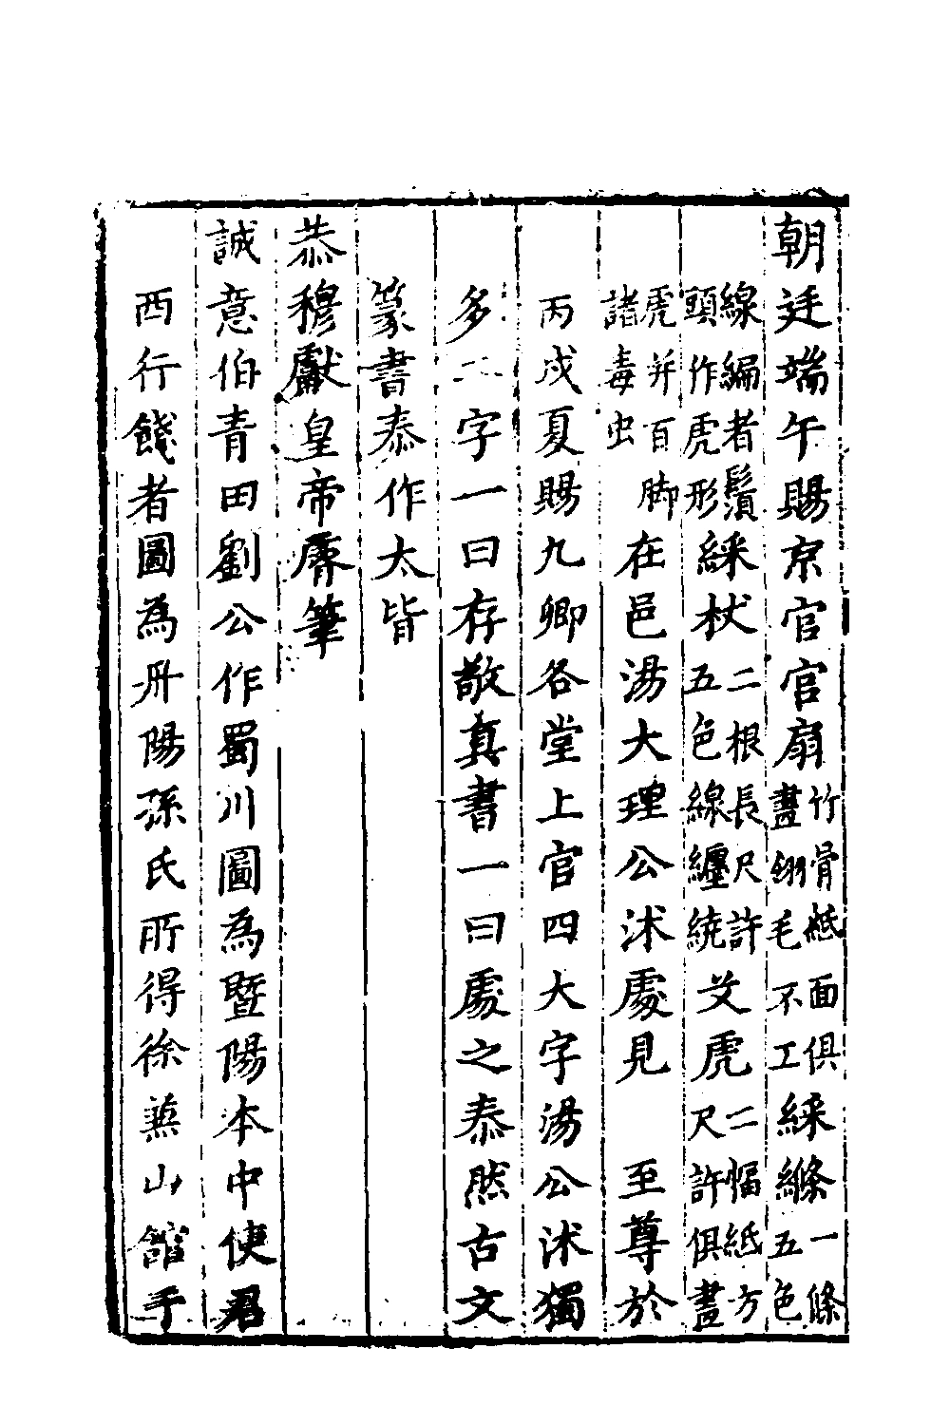 朝廷端午賜京官官扇竹骨紙面俱畫翎毛不工綵縧一條五色
線編者鬚頭作虎形綵杖二根長尺許五色線纏繞艾虎二幅紙方尺許俱畫
虎并百脚諸毒虫在邑湯大理公沭處見 至尊於
丙戍夏賜九卿各堂上官四大字湯公沭獨
多二字一曰存敬真書一曰處之泰然古文
篆書泰作太皆
恭穆獻皇帝筆
誠意伯青田劉公作蜀川圖為暨陽本中使君
西行餞者圖為丹陽孫氏所得徐山館于